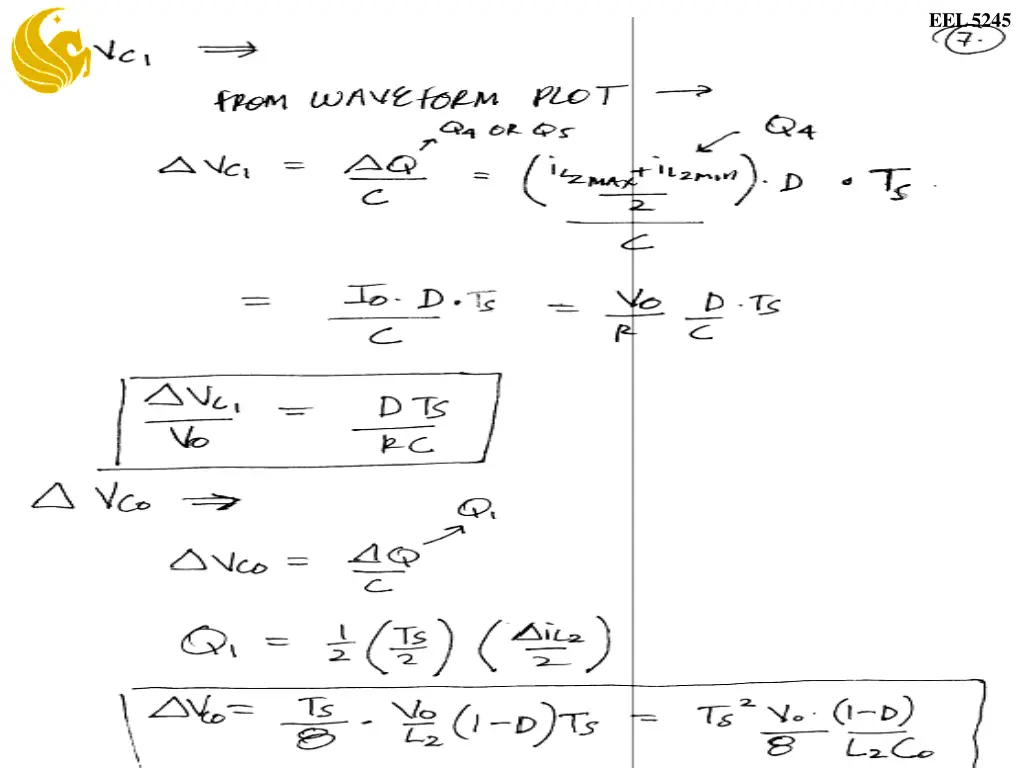 EEL 5245
7.
VC1 ⇒
FROM WAVEFORM PLOT →
Q4 OR Q5
Q4
ΔVC1 = ΔQ/C = ((iL2MAX + iL2MIN)/2) · D • Ts / C
= Io · D • Ts / C = Vo/R D/C · Ts
ΔVC1/Vo = D Ts/RC
Δ VCo ⇒
Q1
ΔVCo = ΔQ/C
Q1 = 1/2 (Ts/2) (ΔiL2/2)
ΔVCo = Ts/8 · Vo/L2 (1-D)Ts = Ts² Vo/8 · (1-D)/L2Co